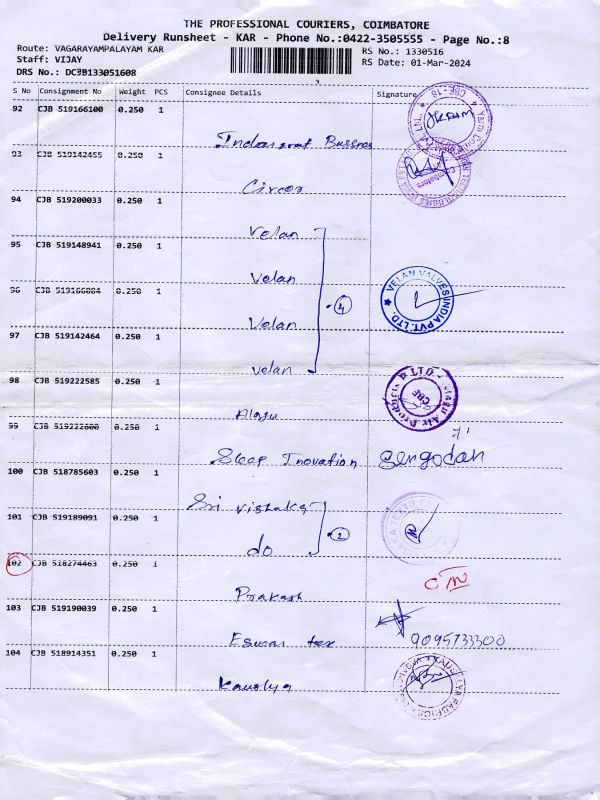 THE PROFESSIONAL COURIERS, COIMBATORE
Delivery Runsheet - KAR - Phone No.:0422-3505555 - Page No.:8
Route: VAGARAYAMPALAYAM KAR
RS No.: 1330516
Staff: VIJAY
RS Date: 01-Mar-2024
DRS No.: DC3B133051608
S No Consignment No Weight PCS Consignee Details Signature
92 CJB 519166100 0.250 1
93 CJB 519142455 0.250 1
Circor
94 CJB 519200033 0.250 1
Velan
95 CJB 519148941 0.250 1
Velan
4
VELAN VALVES INDIA PVT. LTD.
96 CJB 519166084 0.250 1
Velan
97 CJB 519142464 0.250 1
Velan
98 CJB 519222585 0.250 1
CBE
99 CJB 519222600 0.250 1
Sleep Inovation Sengodan
100 CJB 518785603 0.250 1
Sri
101 CJB 519189091 0.250 1
do
2
102 CJB 518274463 0.250 1
Prakash
103 CJB 519190039 0.250 1
Eswari tex 9095733300
104 CJB 518914351 0.250 1
Kauslya